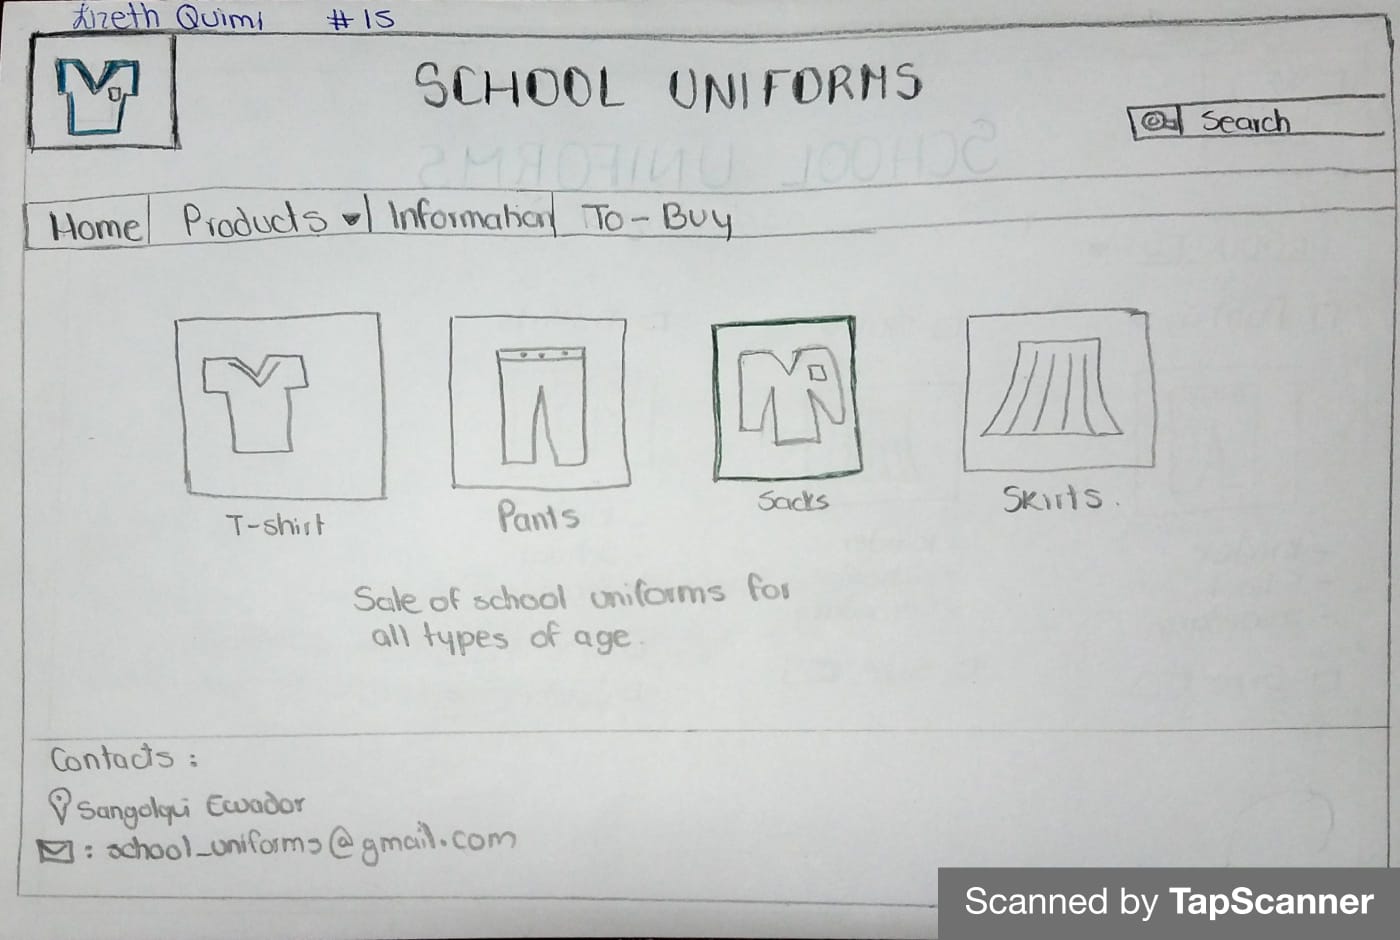 Lizeth Quimi #15
SCHOOL UNIFORMS
Search
Home Products Information To-Buy
T-shirt Pants Sacks Skirts.
Sale of school uniforms for
all types of age.
Contacts:
Sangolqui Ecuador
: school_uniforms@gmail.com
Scanned by TapScanner